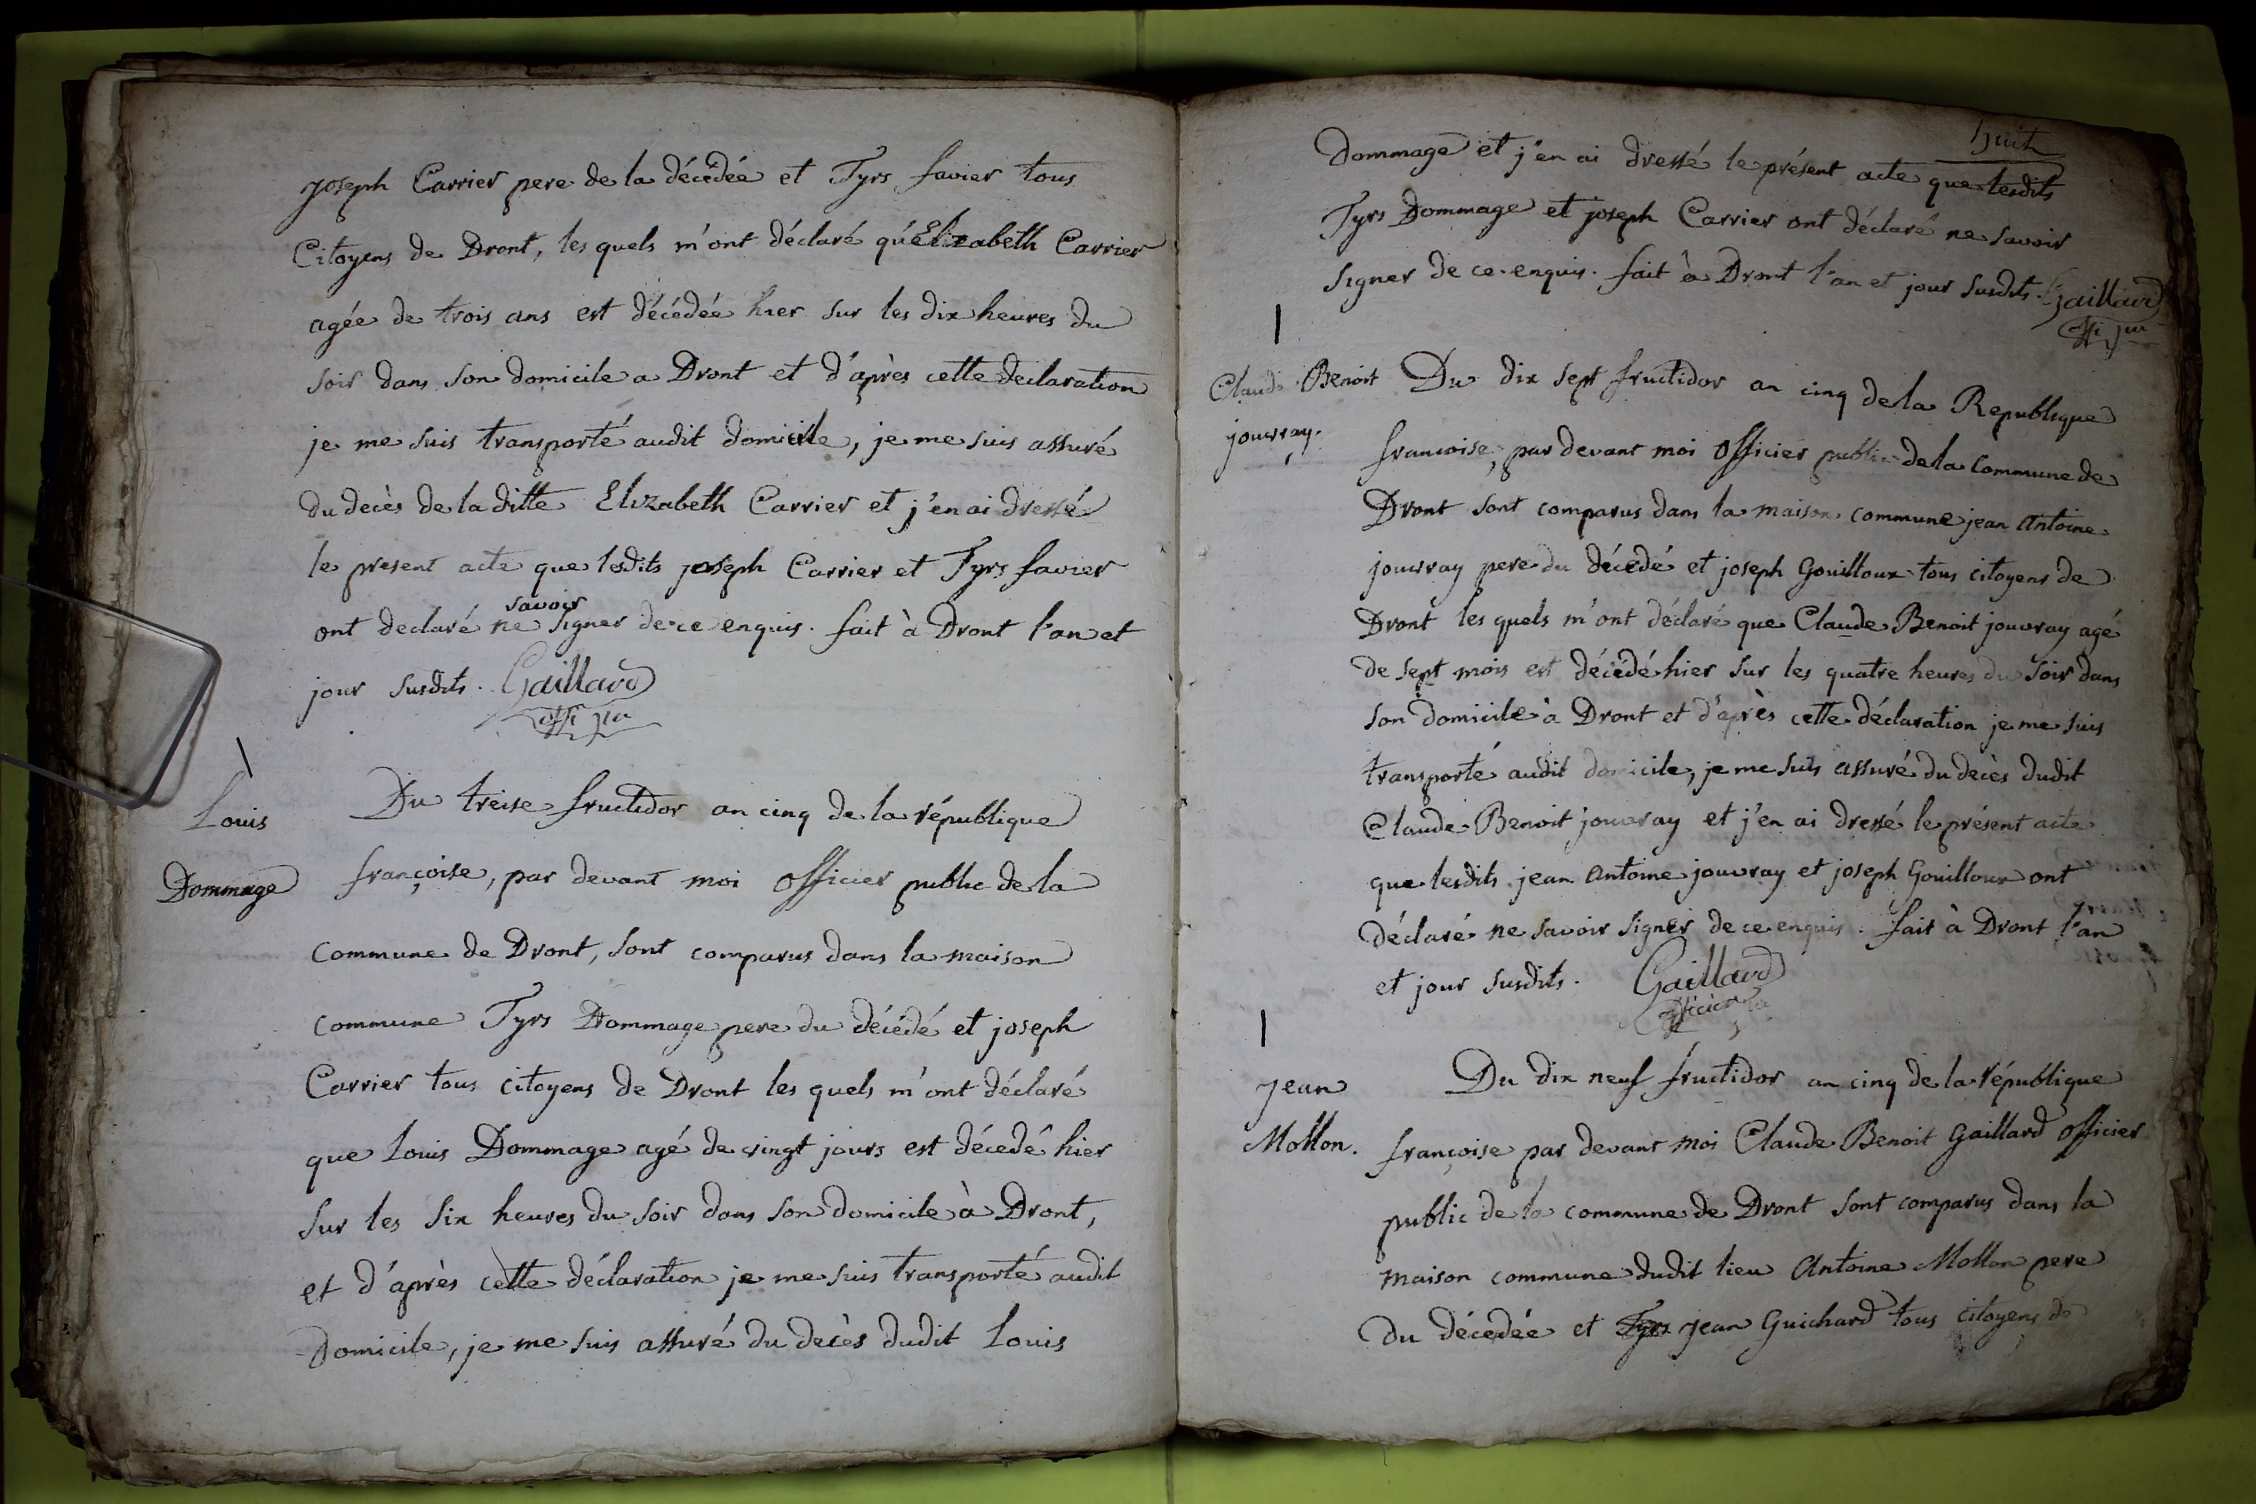 joseph Carrier pere de la décédée et Tyrs favier tous
Citoyens de Dront, les quels m'ont déclaré qu'Elizabeth Carrier
agée de trois ans est décédée hier sur les dix heures du
soir dans son domicile a Dront et d'après cette declaration
je me suis transporté audit domicile, je me suis assuré
du decès de la ditte Elizabeth Carrier et j'en ai dressé
le present acte que lesdits joseph Carrier et Tyrs favier
savoir
ont declaré ne signer de ce enquis. fait à Dront l'an et
jour susdits. Gaillard
offi pu
Louis
Dommage
Du treise fructidor an cinq de la république
françoise, par devant moi officier public de la
commune de Dront, sont comparus dans la maison
commune Tyrs Dommage pere du décédé et joseph
Carrier tous citoyens de Dront les quels m'ont déclaré
que Louis Dommage agé de vingt jours est décedé hier
sur les six heures du soir dans son domicile à Dront,
et d'après cette déclaration je me suis transporté audit
Domicile, je me suis assuré du decès dudit Louis
huit
Dommage et j'en ai dressé le présent acte que lesdits
Tyrs Dommage et joseph Carrier ont déclaré ne savoir
signer de ce enquis. fait à Dront l'an et jour susdits. Gaillard
offi pu
Claude Benoit
jouvray.
Du dix sept fructidor an cinq de la Republique
francoise, par devant moi officier public de la commune de
Dront sont comparus dans la maison commune jean antoine
jouvray pere du décedé et joseph Gouilloux tous citoyens de
Dront les quels m'ont déclaré que Claude Benoit jouvray agé
de sept mois est décédé hier sur les quatre heures du soir dans
son domicile à Dront et d'après cette déclaration je me suis
transporté audit domicile, je me suis assuré du decès dudit
Claude Benoit jouvray et j'en ai dressé le présent acte
que lesdits jean antoine jouvray et joseph Gouilloux ont
déclaré ne savoir signer de ce enquis. fait à Dront l'an
et jour susdits. Gaillard
officier
Jean
Mollon.
Du dix neuf fructidor an cinq de la république
françoise par devant moi Claude Benoit Gaillard officier
public de la commune de Dront sont comparus dans la
maison commune dudit lieu antoine Mollon pere
du décedée et Tyrs jean Guichard tous citoyens de